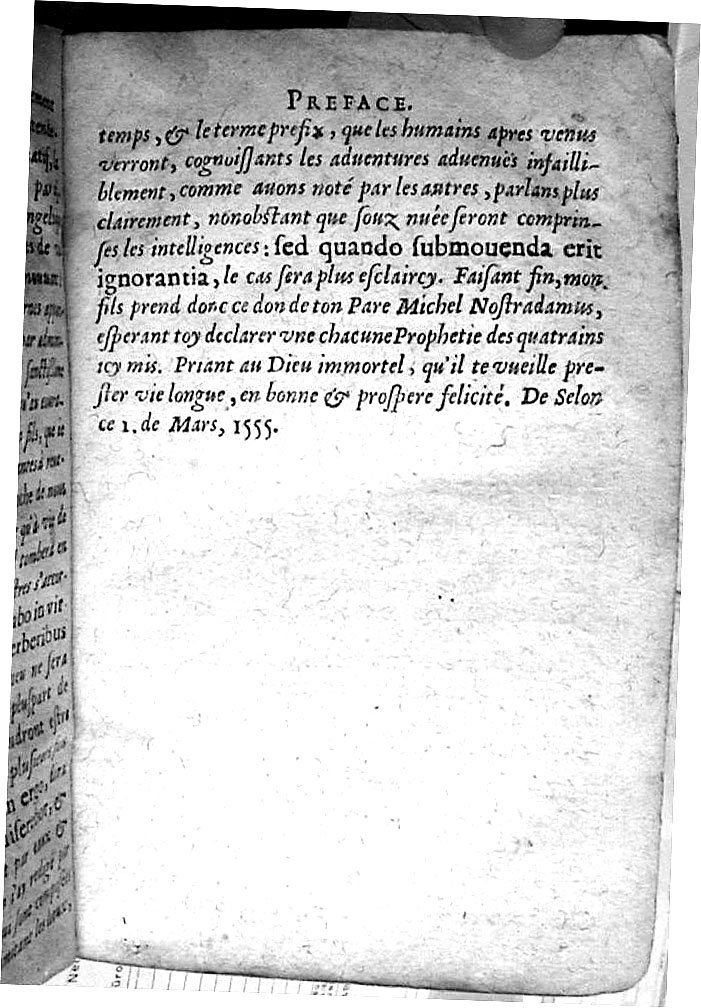 PREFACE.
temps, & le terme prefix, que les humains apres venus
verront, cognoiſſants les aduentures aduenuës infailli-
blement, comme auons noté par les autres, parlans plus
clairement, nonobſtant que ſouz nuée ſeront comprin-
ſes les intelligences: ſed quando ſubmouenda erit
ignorantia, le cas ſera plus eſclaircy. Faiſant fin, mon
fils prend donc ce don de ton Pare Michel Noſtradamus,
eſperant toy declarer vne chacune Prophetie des quatrains
icy mis. Priant au Dieu immortel, qu'il te vueille pre-
ſter vie longue, en bonne & proſpere felicité. De Selon
ce 1. de Mars, 1555.
qu'à vie de
tomberà en
bo in vit
erberibus
ne ſera
pluſpart de